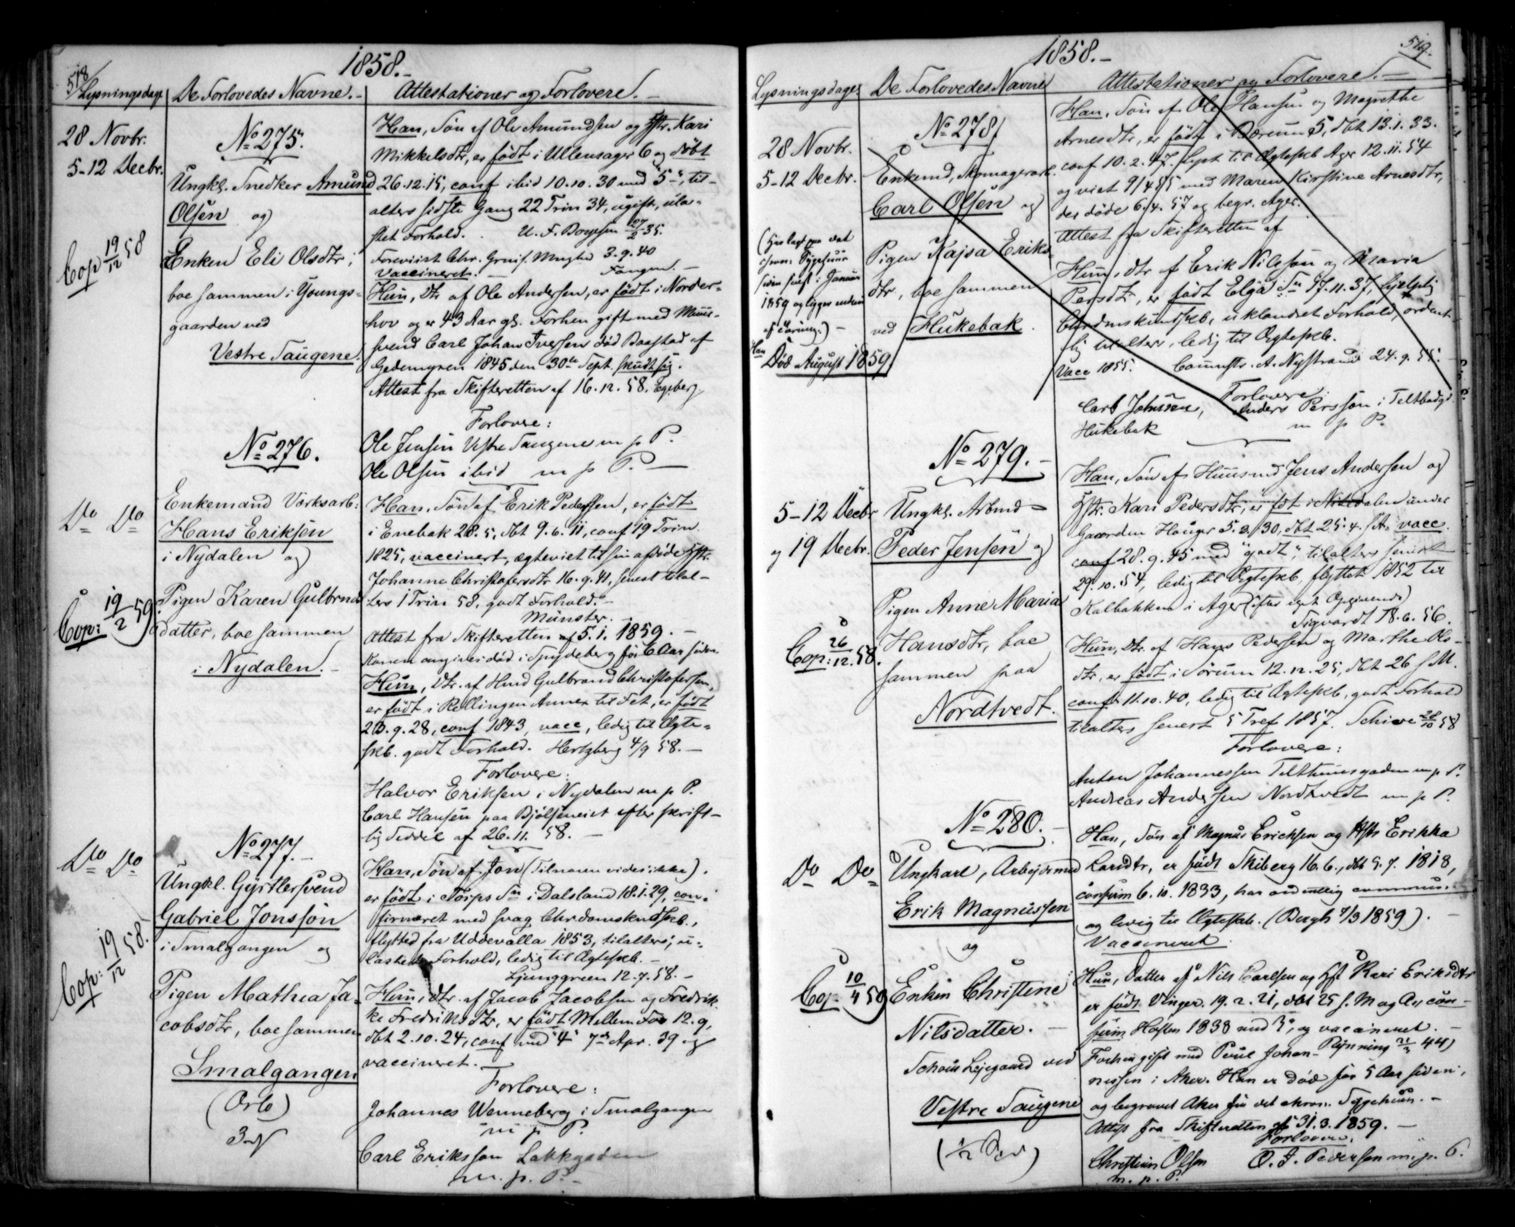 518
1858.-
Lysningsdage
De Forlovedes Navne.-
Attestationer og Forlovere.-
28 Novbr.
5-12 Decbr.
No 275.
Ungkl. Snedker Amund
Olsen og
Enken Eli Olsdtr.,
boe sammen i Youngs-
gaarden ved
Vestre Taugene.
Cop 19/12 58
Han, Søn af Ole Amundsen og Hstr. Kari
Mikkelsdtr, er født i Ullensager 6 og døbt
26.12.15, conf ibid 10.10.30 med "5", til-
alters sidste Gang 22 Trin 34, ugift, ula-
stet Forhold.
Foreviist Chr. 3.9.40
Vaccineret.-
Hun, dtr. af Ole Andersen, er født i Norder-
hov og er 43 Aar gl. Forhen gift med Muur-
svend Carl Johan Iversen død Baastad af
Gedemyren 1845 den 30te Sept.
Attest fra Skifteretten af 16.12.58.
Forlovere:
Ole Jensen Vestre Taugene m p P.
Ole Olsen ibid m p P.
No 276.
Do Do
Enkemand Værksarb:
Hans Eriksen
i Nydalen og
Pigen Karen Gulbrands
datter, boe sammen
i Nydalen.-
Cop: 19/2 59
Han, Søn af Erik Pedersen, er født
i Enebak 28.5, dbt 9.6.11, conf 19 Trin.
1825, vaccinert, egteviet til sin afdøde Hstr.
Johanne Christofersdtr. 16.9.41, senest tilal-
ters 1 Trin 58, godt Forhold.-
Münster.-
Attest fra Skifteretten af 5.1.1859.-
Konen angives død i Spydeberg for 6 Aar siden
Hun, Dtr. af Huud Gulbrand Christofersen,
er født i Rellingen Annex til Fet, er født
28.9.28, conf 1843, vacc, ledig til Ægte-
skb. godt Forhold. Hertzberg 4/9 58.-
Forlovere:
Halvor Eriksen i Nydalen m p P.
Carl Hansen paa Bjølseneiet efter skrift-
lig Seddel af 26.11.58.-
No 277.-
Do Do
Ungkl. Gjørtlersvend
Gabriel Jonsson
i Smalgangen og
Pigen Mathea Ja-
cobsdtr, boe sammen
Smalgangen
(Orlo)
Cop: 19/12 58.
Han, Søn af Jon (Tilnavn vides ikke),
er født i Nørps Sn i Dalsland 18.1.29, con-
firmeret med svag Chrdomskndskb.,
flytted fra Uddevalla 1853, tilalters, u-
lastet Forhold, ledig til Ægteskb.-
Ljunggreen 12.7.58.-
Hun, dtr. af Jacob Jacobsen og Fredrik-
ke Fredriksdtr, er født Mellem Foss 12.9,
dbt 2.10.24, conf med "4" 7de Apr. 39 og
vaccineret.-
Forlovere:
Johannes Wenneberg i Smalgangen
m p P.
Carl Eriksson Lakkegaden
m. p. P.-
519.
1858.-
Lysningsdage
De Forlovedes Navne
Attestationer og Forlovere.-
28 Novbr.
5-12 Decbr.
No 278
Enkemd,
Carl Olsen og
Pigen Kajsa Eriks-
dtr, boe sammen
ved Hukebak.
1859 og ligger
Han
Død August 1859
Han, Søn af Ole Hansen og Magrethe
Arnesdtr, er født i Bærum 5, dbt 13.1.33.
conf 10.2.47. lyst til Ægteskb Ager 12.11.54
og viet 9/4 55 med Maren Kirstine Arnesdtr,
der døde 6.4.57 og begr. Ager.
Attest fra Skifteretten af
Hun, dtr. af Erik Nilssen og Maria
Persdtr, er født Elgå Sn 17.11.37, hjelpelig
Chrdmskundskb, uklandret Forhold, ordent-
lig tilalters, ledig til Ægteskb.
Vacc 1855. A. Nystrand 24.9.55.
Forlovere
Carl Johnsen, Anders Persson i Teltbodgd
Hukebak m p P.
No 279.-
5-12 Decbr
og 19 Decbr.
Ungkl. Arbmd-
Peder Jensen og
Pigen Anne Maria
Hansdtr, boe
sammen paa
Nordtvedt.
Cop: 26/12 58.
Han, Søn af Huusmd Jens Andersen og
Hstr. Kari Pedersdtr, er født i Nitedalen under
Gaarden Hauger 5.2.30, dbt 25.4. s. A, vacc.
conf 28.9.45 med "godt", tilalters senest
29.10.54, ledig til Ægteskb, flyttet 1852 til
Kalbakken i Ager (efter eget Opgivende)
Sigvardt 18.6.56.
Hun, Dtr. af Hans Pedersen og Marthe Ols-
dtr., er født i Sørum 12.12.25, dbt 26 s. M.
conf. 11.10.40, ledig til Ægteskb, godt Forhold
tilalters senest 5 Tref 1857. Schive 28/10 58
Forlovere:
Anton Johannessen Telthuusgaden m p P.
Andreas Andersen Nordtvedt m p P.
No 280.-
Do Do
Ungkarl, Arbejdsmand
Erik Magnussen
og
Enken Christine
Nilsdatter.-
Schous Løjegaard ved
Vestre Taugene
Cop: 10/4 59
Han, Søn af Magnus Ericksen og Hstr Erikka
Larsdtr, er født Skiberg 16.6., dbt 5.7. 1813,
confirm 6.10.1833, har ordentlig commun:
og ledig til Ægteskb. (Bergh 4/3 1859).-
Vaccineret.
Hun, Datter af Nils Carlsen og Hst Keri Eriksdtr
er født Vinger. 19.2.21, dbt 25 s. M og Aar, con-
firm. Høsten 1838 med "3", og vaccineret.-
Forhen gift med Poul Johan-
nessen i Aker. Han er død for 5 Aar siden,
og begravet Aker
Attest fra Skifteretten af 31.3.1859.-
Forlovere:
Christian Olsen O. J. Pedersen m. p. P.
m. p. P.